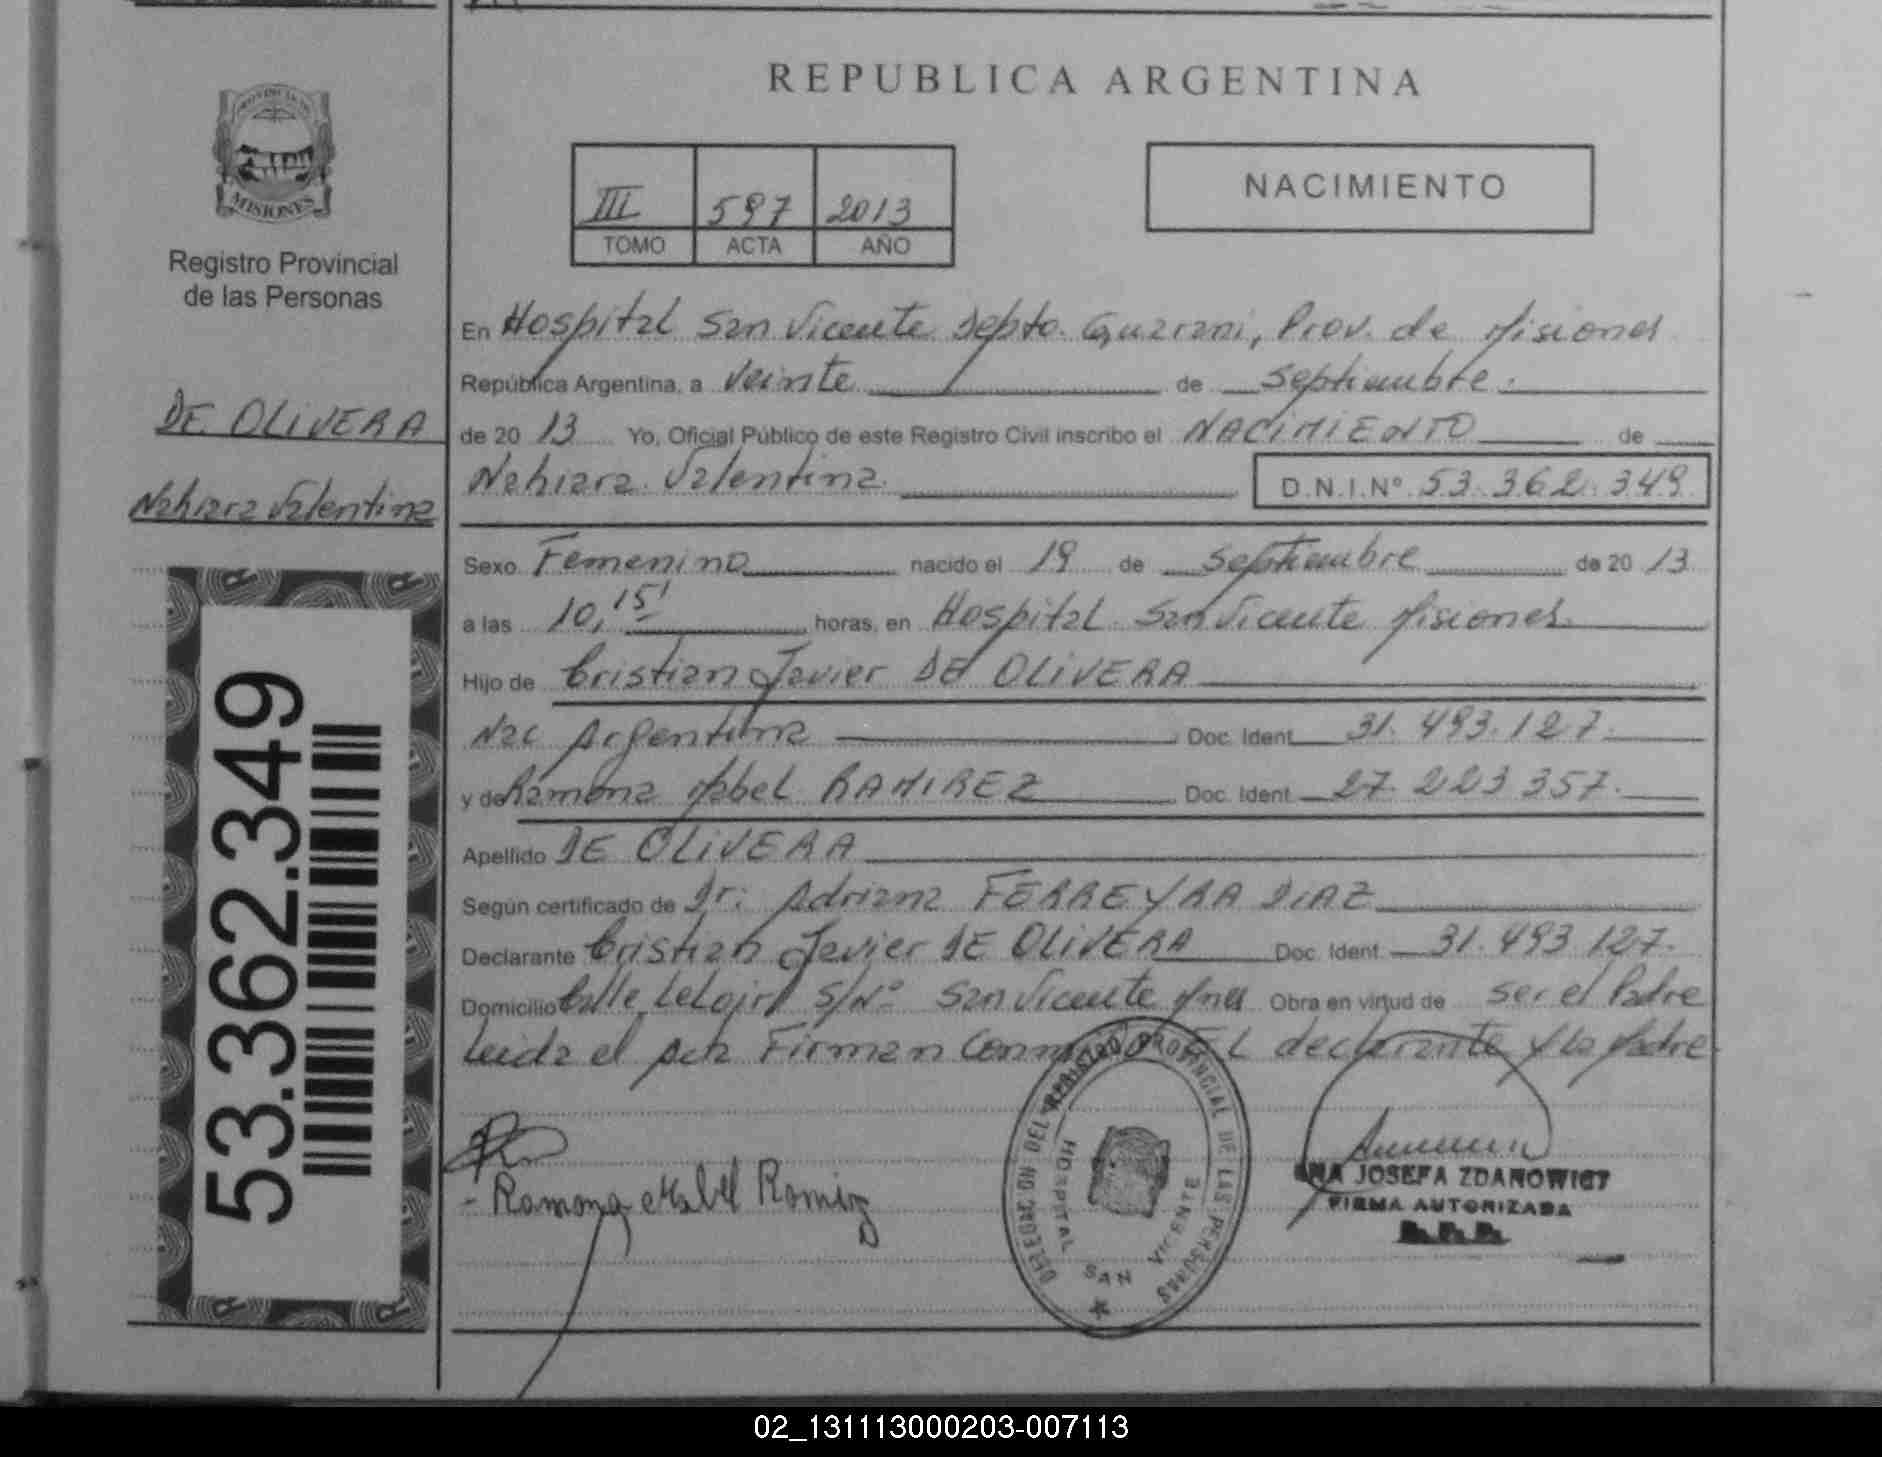 REPUBLICA ARGENTINA
PROVINCIA DE
MISIONES
Registro Provincial
de las Personas
DE OLIVERA
Nahiara Valentina
53.362.349
III 597 2013
TOMO ACTA AÑO
NACIMIENTO
En Hospital San Vicente Depto. Guarani, Prov. de Misiones
República Argentina, a Veinte de Septiembre.
de 20 13 Yo, Oficial Público de este Registro Civil inscribo el NACIMIENTO de
Nahiara Valentina D.N.I.Nº 53.362.349
Sexo Femenino nacido el 19 de Septiembre de 20 13
a las 10,15' horas, en Hospital San Vicente Misiones
Hijo de Cristian Javier DE OLIVERA
Nac Argentina Doc. Ident. 31.493.127.
y de Ramona Mabel RAMIREZ Doc. Ident. 27.223.357.
Apellido DE OLIVERA
Según certificado de Dr: Adriana FERREYRA DIAZ
Declarante Cristian Javier DE OLIVERA Doc. Ident. 31.493.127.
Domicilio Calle Leloir S/Nº San Vicente Mnes Obra en virtud de ser el Padre
Leida el Acta Firman Conmigo EL declarante y la Madre
Ramona Mabel Ramirez
DELEGACION DEL REGISTRO PROVINCIAL DE LAS PERSONAS
HOSPITAL
SAN VICENTE
ANA JOSEFA ZDANOWICZ
FIRMA AUTORIZADA
R.P.P.
02_131113000203-007113